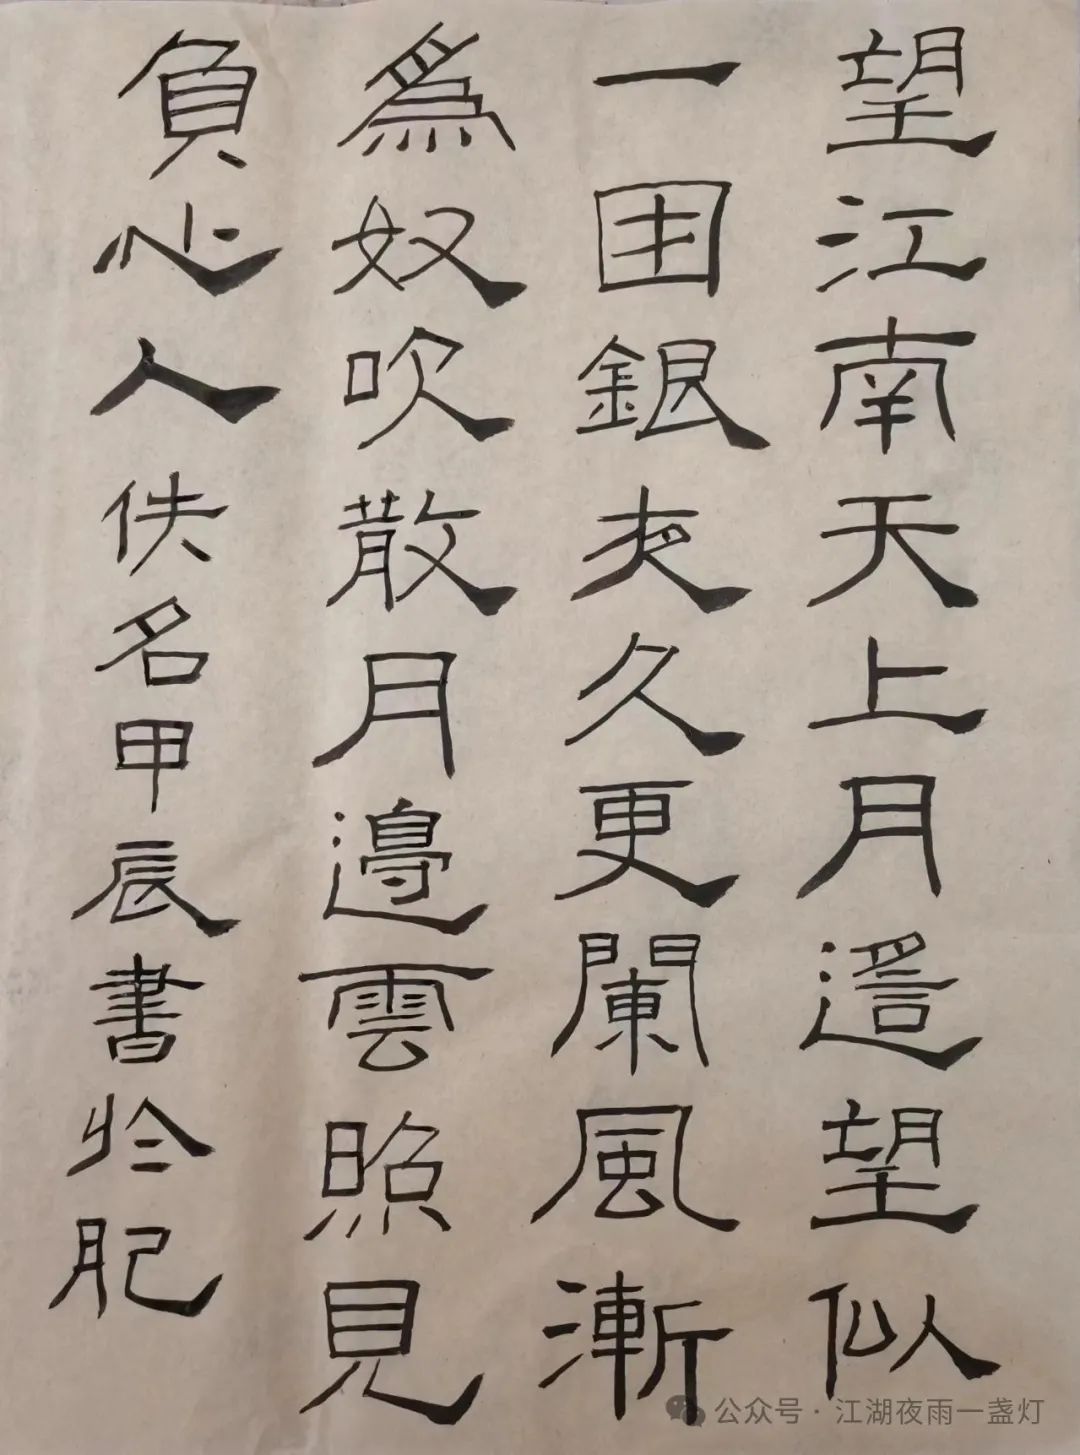 望江南天上月遥望似
一团銀夜久更闌風漸
為奴吹散月邊雲照見
負心人佚名甲辰書於肥
公众号·江湖夜雨一盏灯